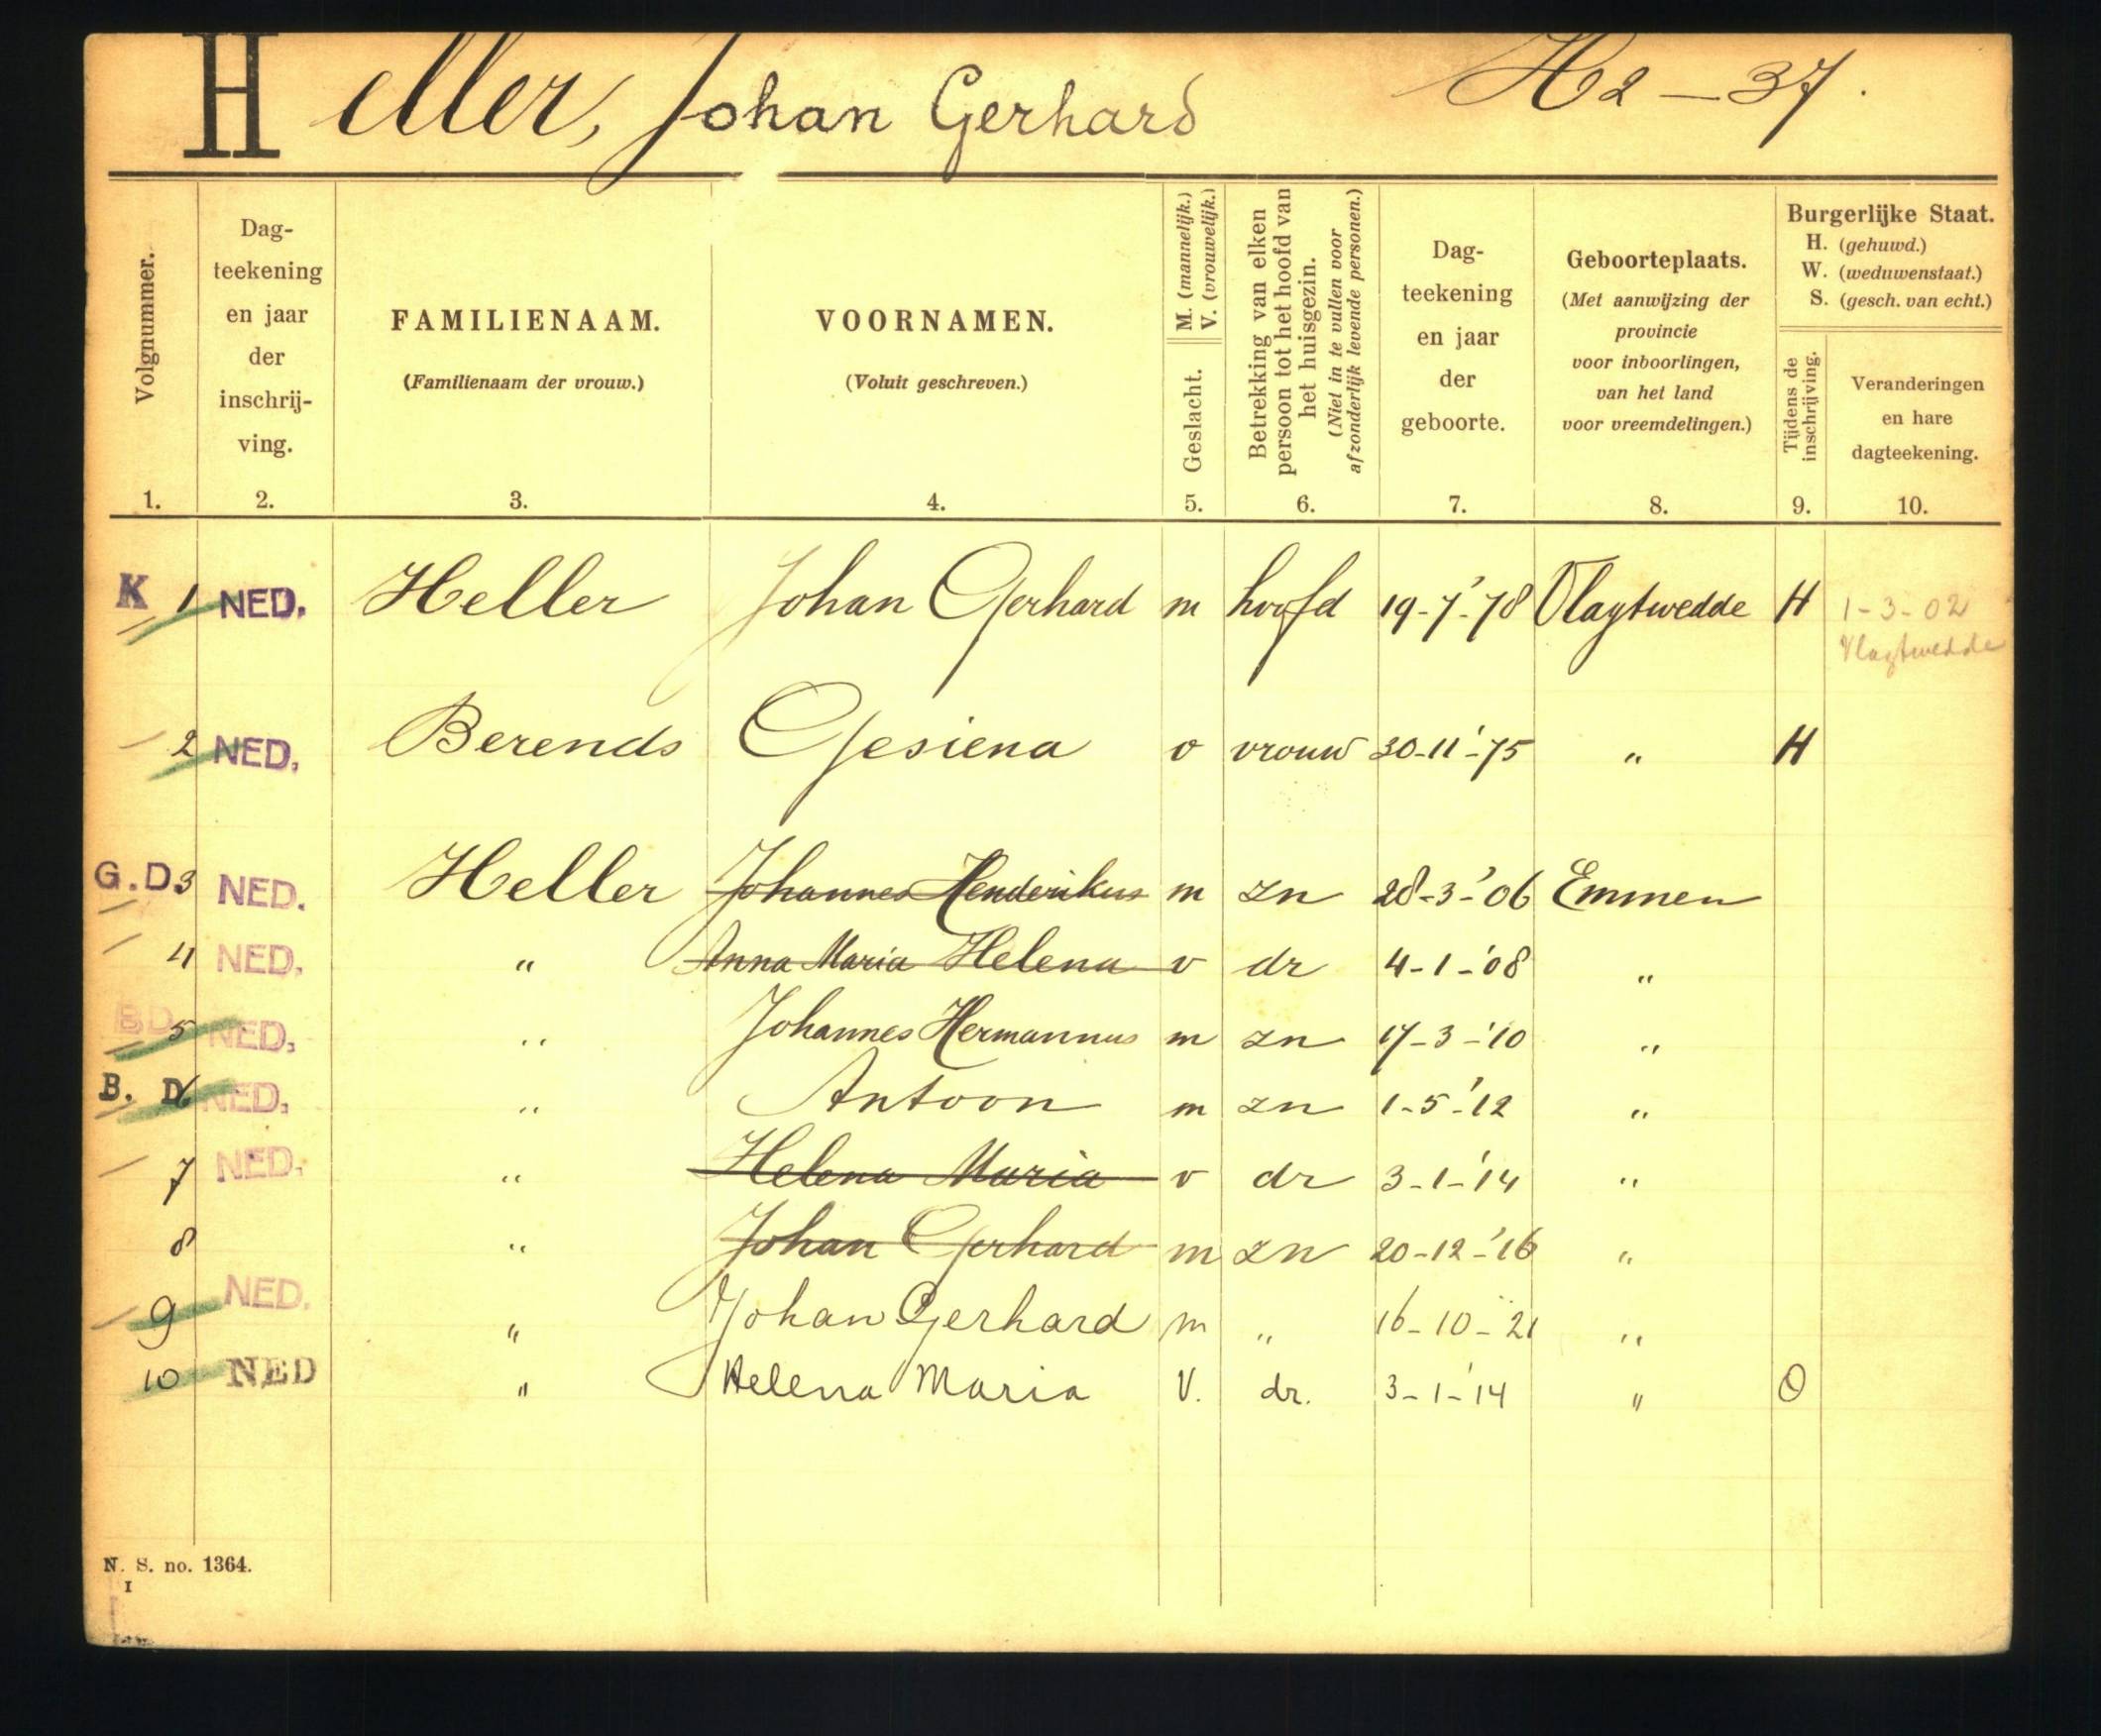 Heller, Johan Gerhard H2-37.
Volgnummer.
Dag-
teekening
en jaar
der
inschrij-
ving.
FAMILIENAAM.
(Familienaam der vrouw.)
VOORNAMEN.
(Voluit geschreven.)
M. (mannelijk.)
V. (vrouwelijk.)
Geslacht.
Betrekking van elken
persoon tot het hoofd van
het huisgezin.
(Niet in te vullen voor
afzonderlijk levende personen.)
Dag-
teekening
en jaar
der
geboorte.
Geboorteplaats.
(Met aanwijzing der
provincie
voor inboorlingen,
van het land
voor vreemdelingen.)
Burgerlijke Staat.
H. (gehuwd.)
W. (weduwenstaat.)
S. (gesch. van echt.)
Tijdens de
inschrijving.
Veranderingen
en hare
dagteekening.
1. 2. 3. 4. 5. 6. 7. 8. 9. 10.
K 1 NED. Heller Johan Gerhard m hoofd 19-7-'78 Vlagtwedde H 1-3-02
Vlagtwedde
2 NED. Berends Gesiena v vrouw 30-11-'75 " H
G.D. 3 NED. Heller Johannes Henderikus m zn 28-3-'06 Emmen
4 NED. " Anna Maria Helena v dr 4-1-'08 "
BD 5 NED. " Johannes Hermannus m zn 17-3-'10 "
B. D. 6 NED. " Antoon m zn 1-5-'12 "
7 NED. " Helena Maria v dr 3-1-'14 "
8 " Johan Gerhard m zn 20-12-'16 "
9 NED. " Johan Gerhard m " 16-10-21 "
10 NED " Helena Maria V. dr. 3-1-'14 " O
N. S. no. 1364.
I